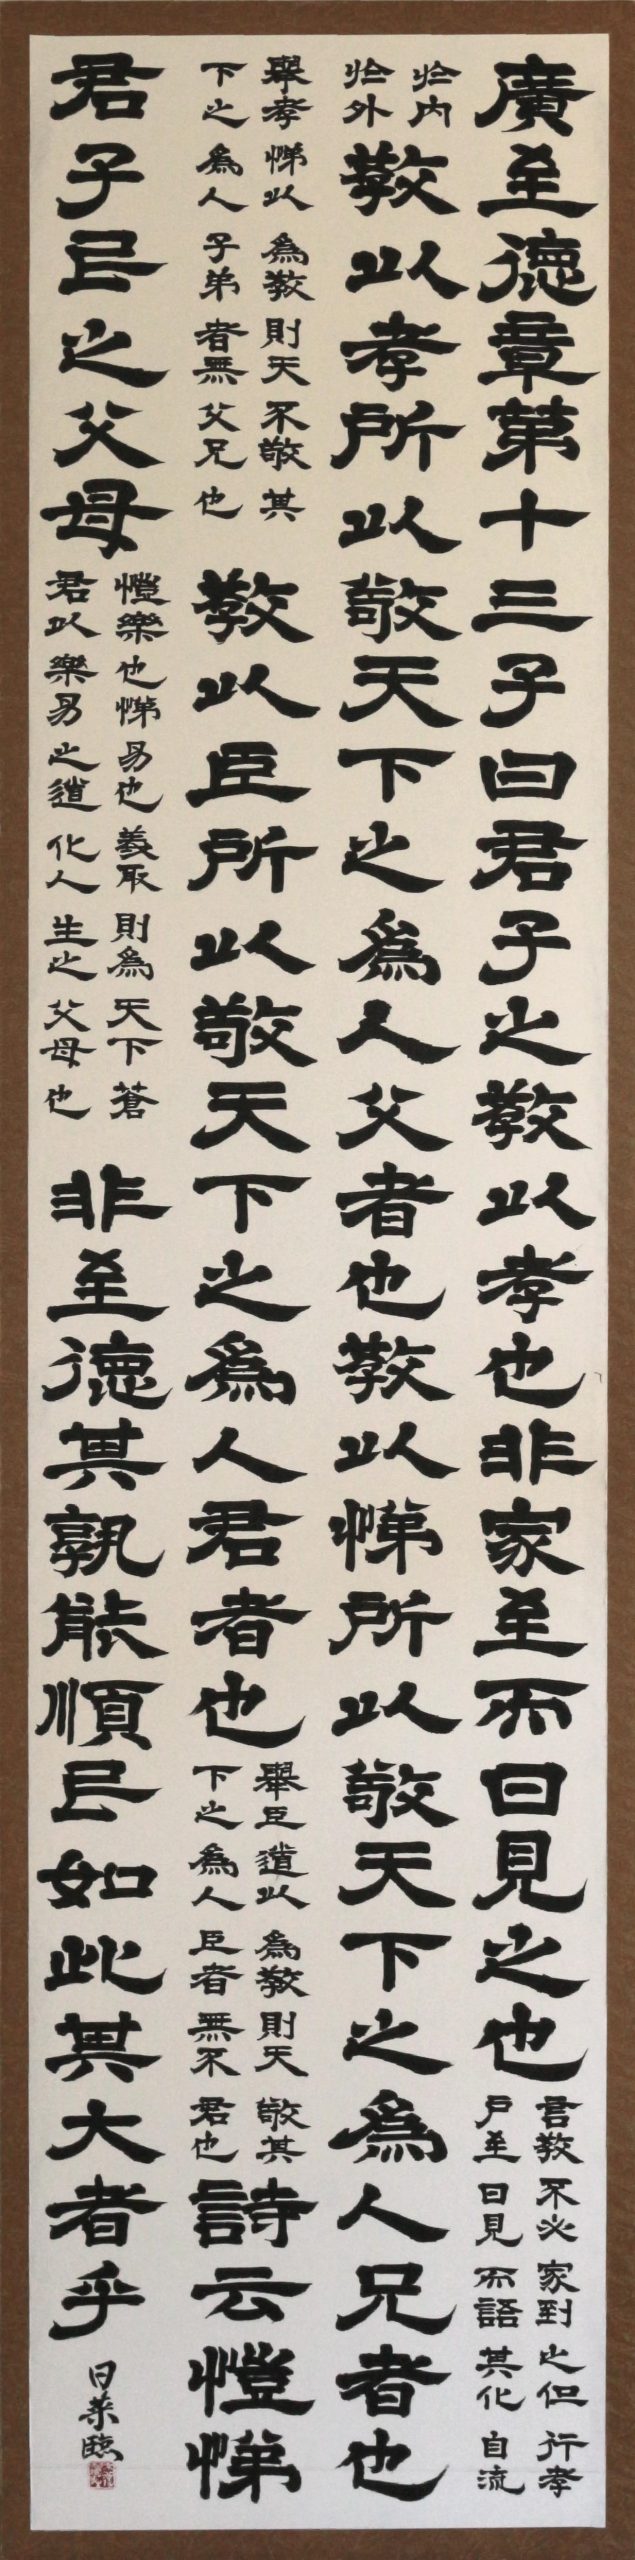 廣至德章第十三子曰君子之教以孝也非家至而日見之也
言教不必家到之但行孝
戶至日見而語其化自流
於內
於外
教以孝所以敬天下之爲人父者也教以悌所以敬天下之爲人兄者也
舉孝悌以爲教則天不敬其
下之爲人子弟者無父兄也
教以臣所以敬天下之爲人君者也
舉臣道以爲教則天敬其
下之爲人臣者無不君也
詩云愷悌
君子民之父母
愷樂也悌易也義取則爲天下蒼
君以樂易之道化人生之父母也
非至德其孰能順民如此其大者乎
日葉臨